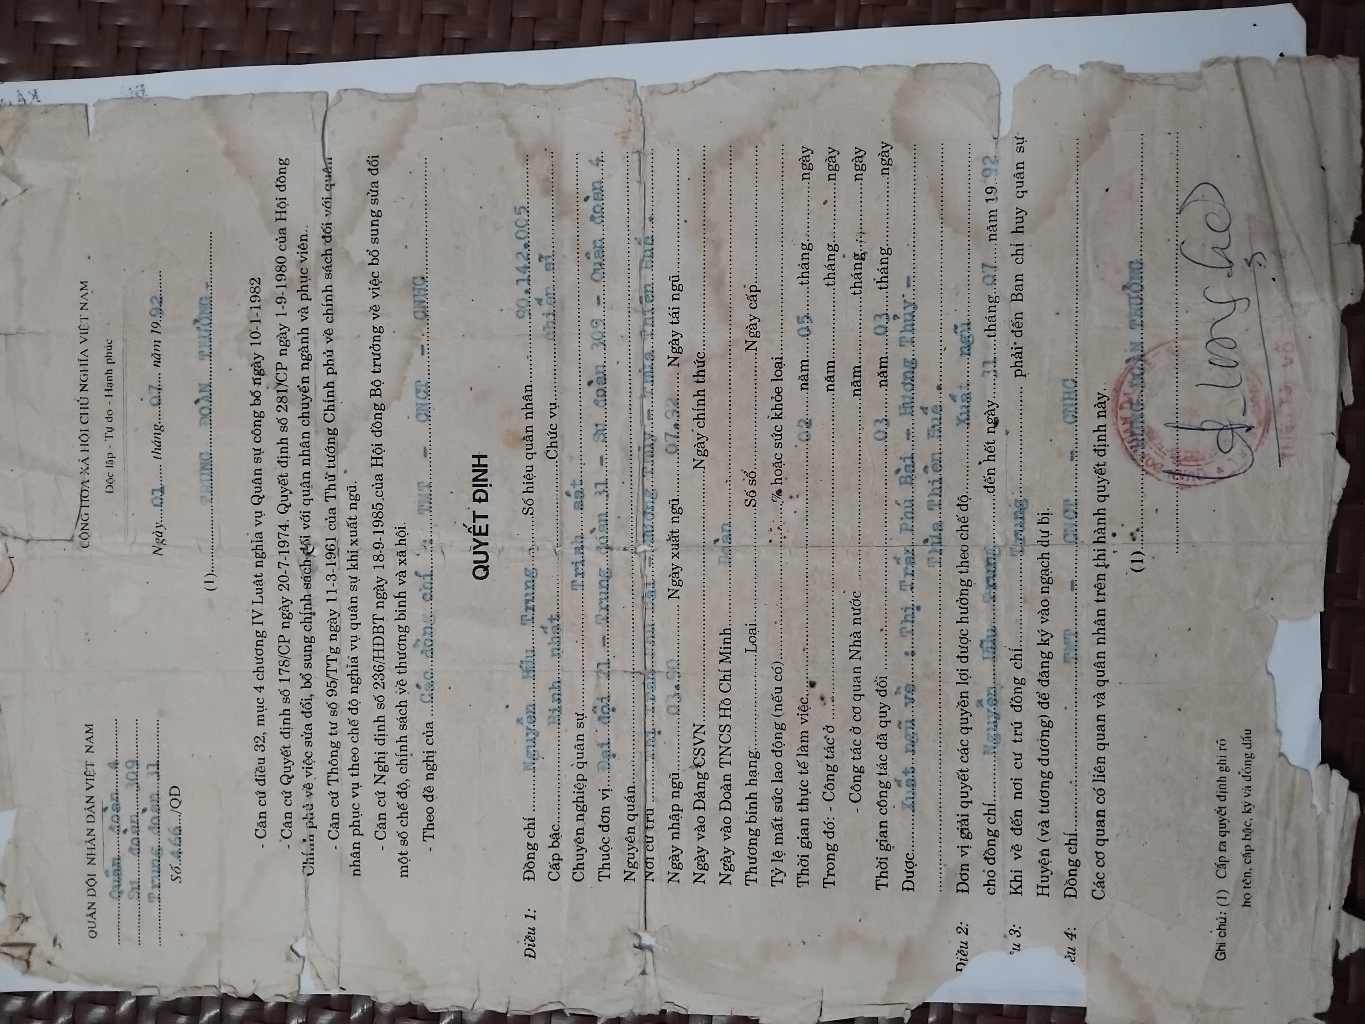 QUÂN ĐỘI NHÂN DÂN VIỆT NAM
Quân đoàn 4
Sư đoàn 309
Trung đoàn 31
Số 466 /QĐ
CỘNG HÒA XÃ HỘI CHỦ NGHĨA VIỆT NAM
Độc lập - Tự do - Hạnh phúc
Ngày 01 tháng 07 năm 1992
(1) TRUNG ĐOÀN TRƯỞNG -
- Căn cứ điều 32, mục 4 chương IV Luật nghĩa vụ Quân sự công bố ngày 10-1-1982
- Căn cứ Quyết định số 178/CP ngày 20-7-1974. Quyết định số 281/CP ngày 1-9-1980 của Hội đồng
Chính phủ về việc sửa đổi, bổ sung chính sách đối với quân nhân chuyển ngành và phục viên.
- Căn cứ Thông tư số 95/TTg ngày 11-3-1961 của Thử tướng Chính phủ về chính sách đối với quân
nhân phục vụ theo chế độ nghĩa vụ quân sự khi xuất ngũ.
- Căn cứ Nghị định số 236/HĐBT ngày 18-9-1985 của Hội đồng Bộ trưởng về việc bổ sung sửa đổi
một số chế độ, chính sách về thương binh và xã hội.
- Theo đề nghị của Các đồng chí : TMT - CNCT - CNHC
QUYẾT ĐỊNH
Điều 1: Đồng chí Nguyễn Hữu Trung Số hiệu quân nhân 90.142.005
Cấp bậc Binh nhất Chức vụ chiến sĩ
Chuyên nghiệp quân sự Trinh sát
Thuộc đơn vị Đại đội 21 - Trung đoàn 31 - Sư đoàn 309 - Quân đoàn 4
Nguyên quán
Nơi cư trú Thị Trấn Phú Bài - Hương Thủy - Thừa Thiên Huế
Ngày nhập ngũ 03.90 Ngày xuất ngũ 07.92 Ngày tái ngũ
Ngày vào Đảng CSVN Ngày chính thức
Ngày vào Đoàn TNCS Hồ Chí Minh Đoàn
Thương binh hạng Loại Số sổ Ngày cấp
Tỷ lệ mất sức lao động (nếu có) % hoặc sức khỏe loại
Thời gian thực tế làm việc 02 năm 05 tháng ngày
Trong đó: - Công tác ở năm tháng ngày
- Công tác ở cơ quan Nhà nước năm tháng ngày
Thời gian công tác đã quy đổi 03 năm 03 tháng ngày
Được Xuất ngũ về : Thị Trấn Phú Bài - Hương Thủy -
Thừa Thiên Huế
Điều 2: Đơn vị giải quyết các quyền lợi được hưởng theo chế độ Xuất ngũ
cho đồng chí Nguyễn Hữu Trung đến hết ngày 31 tháng 07 năm 1992
u 3: Khi về đến nơi cư trú đồng chí Trung phải đến Ban chỉ huy quân sự
Huyện (và tương đương) để đăng ký vào ngạch dự bị.
ều 4: Đồng chí TMT - CNCT - CNHC
Các cơ quan có liên quan và quân nhân trên thi hành quyết định này.
(1) TRUNG ĐOÀN TRƯỞNG
Ghi chú: (1) Cấp ra quyết định ghi rõ
họ tên, cấp bậc, ký và đóng dấu